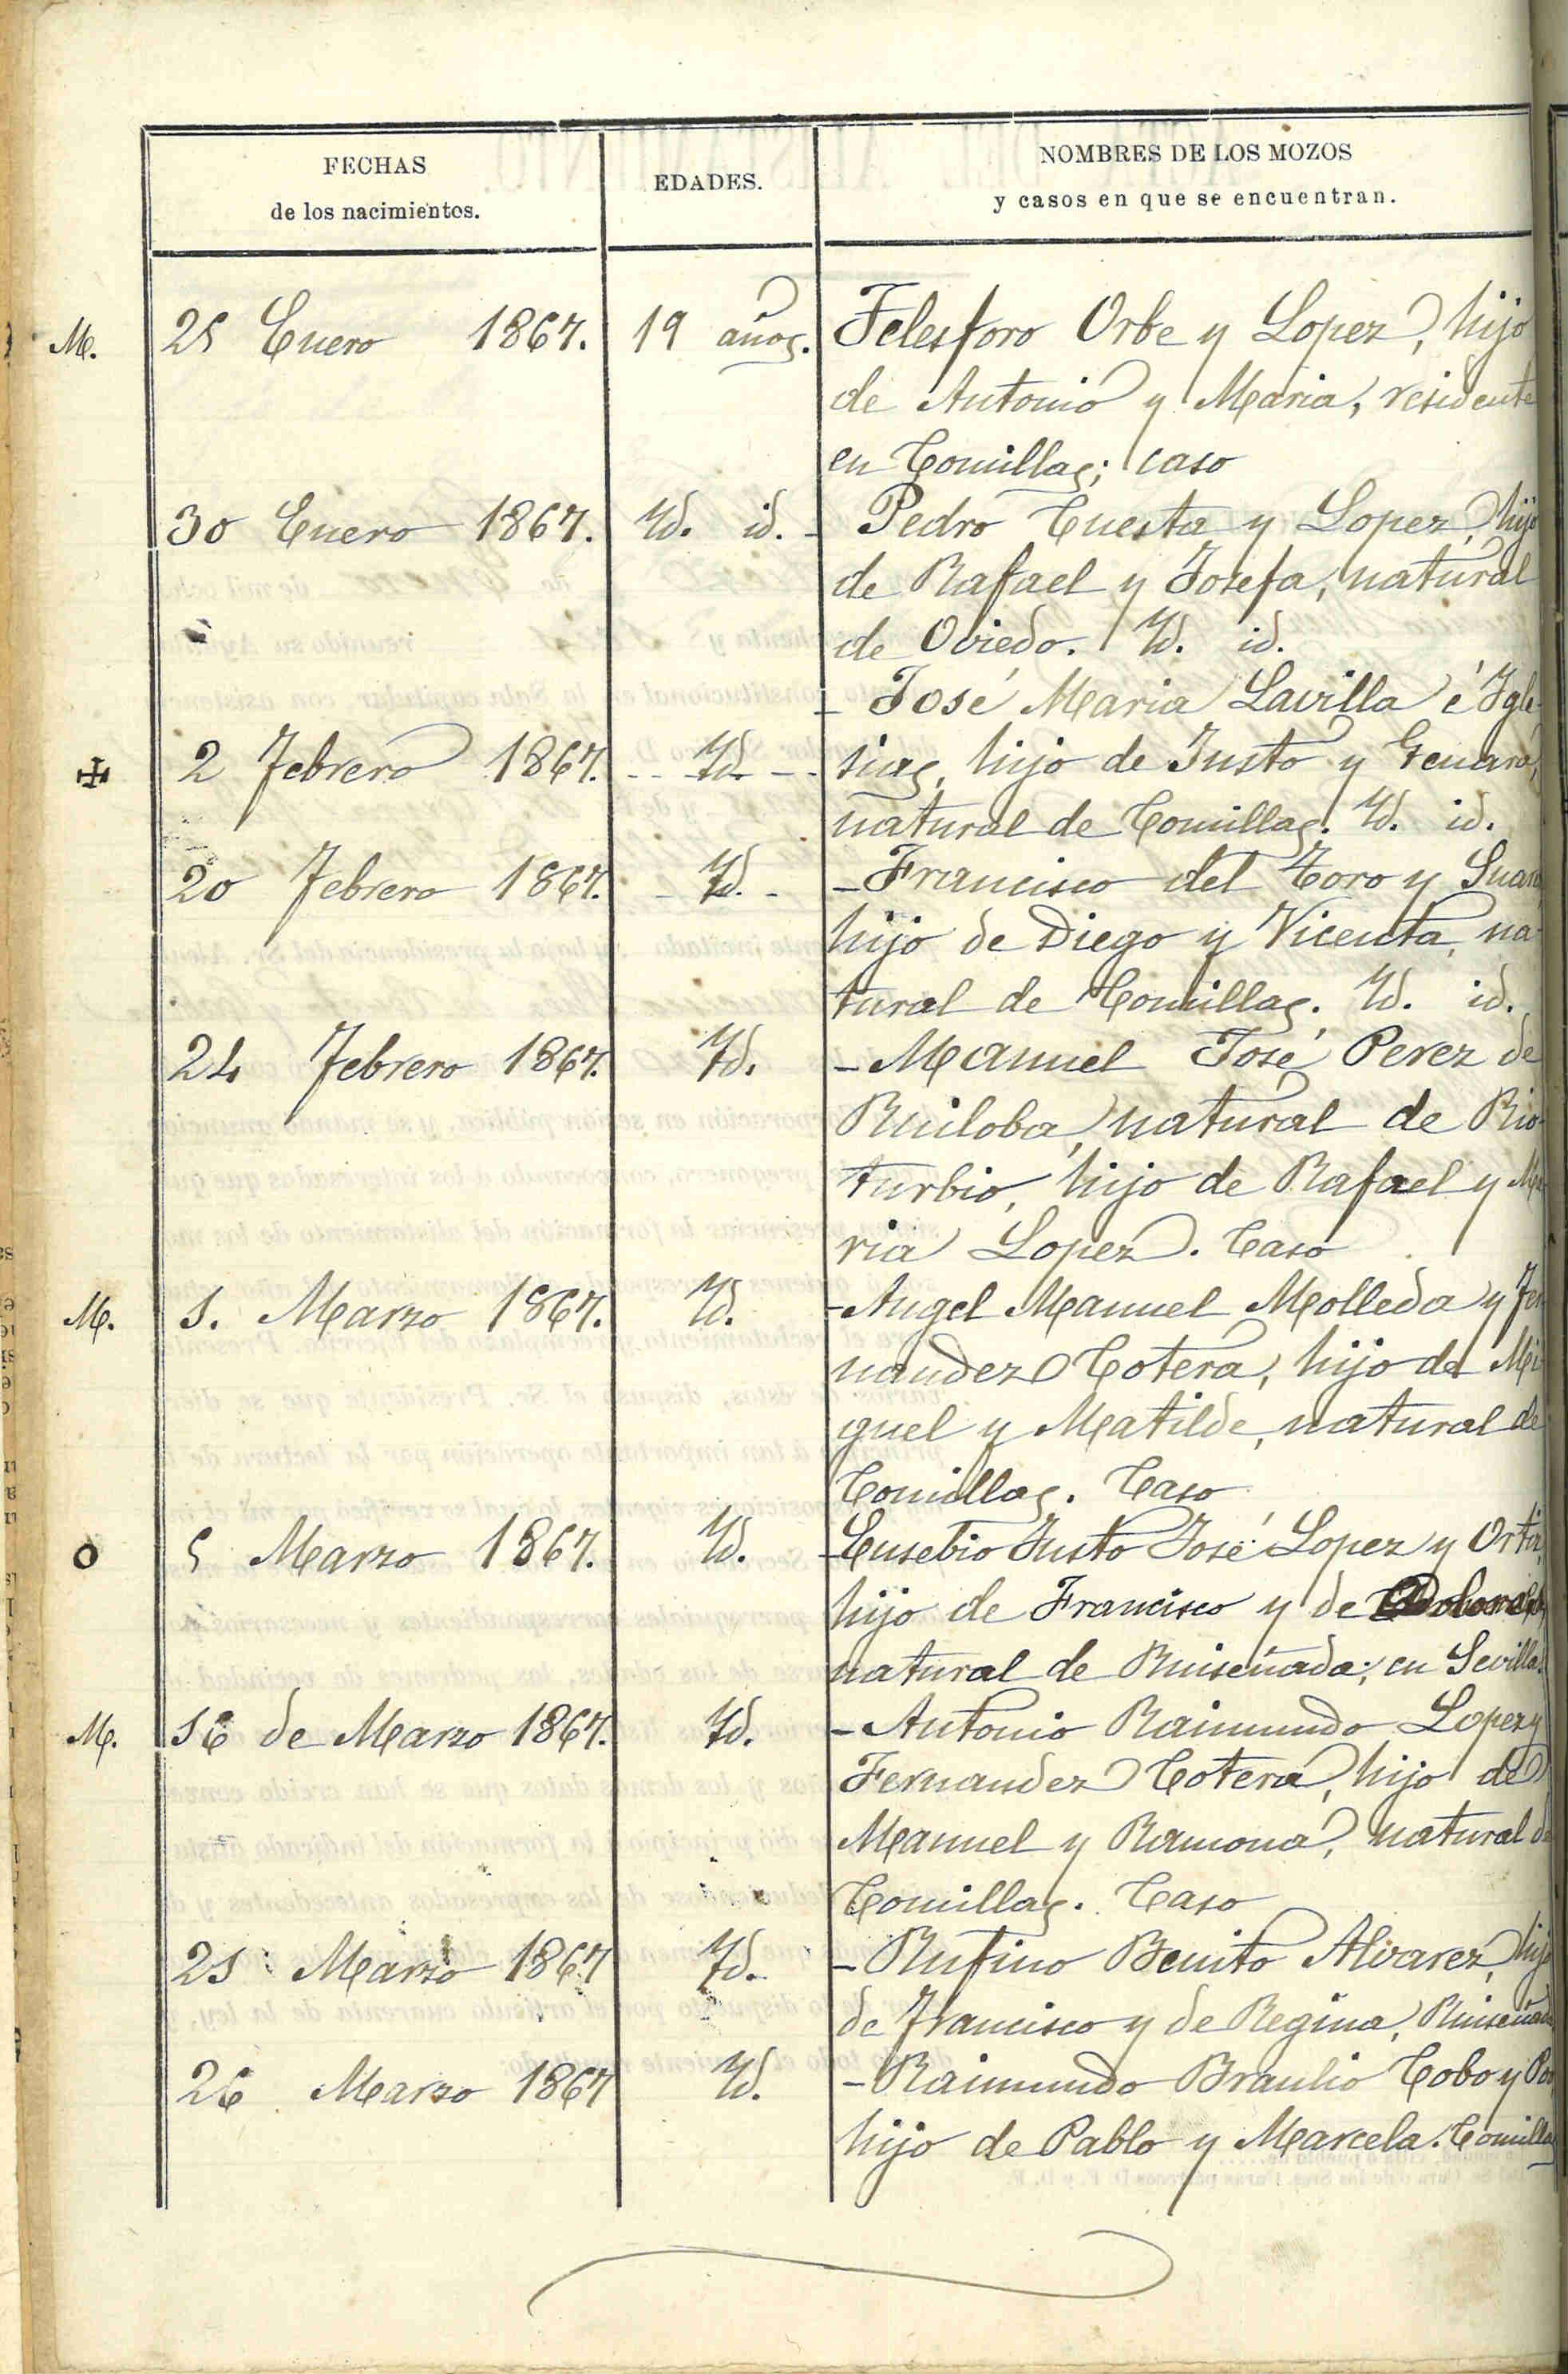 FECHAS
de los nacimientos.
EDADES.
NOMBRES DE LOS MOZOS
y casos en que se encuentran.
M. 25 Enero 1867. 19 años. Telesforo Orbe y Lopez, hijo
de Antonio y Maria, residente
en Comillas; caso
30 Enero 1867. Id. id. - Pedro Cuesta y Lopez, hijo
de Rafael y Josefa, natural
de Oviedo. Id. id.
- José Maria Lavilla é Igle-
✠ 2 Febrero 1867. - - Id. - - sias, hijo de Justo y Genara,
natural de Comillas. Id. id.
20 Febrero 1867. - Id. - - Francisco del Toro y
hijo de Diego y Vicenta, na-
tural de Comillas. Id. id.
24 Febrero 1867. Id. - Manuel José Perez de
Ruiloba, natural de Rio-
turbio, hijo de Rafael y Ma
ria Lopez. Caso
M. 1. Marzo 1867. Id. - Angel Manuel Molleda y Fer
nandez Cotera, hijo de Mi
guel y Matilde, natural de
Comillas. Caso
O 5 Marzo 1867. Id. - Eusebio Justo José Lopez y
hijo de Francisco y de Dolores,
natural de Ruiseñada; en Sevilla.
M. 16 de Marzo 1867. Id. - Antonio Raimundo Lopez y
Fernandez Cotera, hijo de
Manuel y Ramona, natural de
Comillas. Caso
21 Marzo 1867 Id. - Rufino Benito Alvarez, hijo
de Francisco y de Regina, Ruiseñada
26 Marzo 1867 Id. - Raimundo Braulio Cobo y
hijo de Pablo y Marcela. Comillas